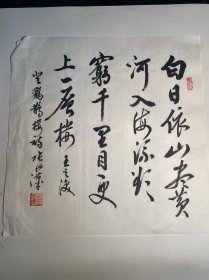 白日依山尽黄
河入海流欲
窮千里目更
上一层楼 王之涣
登鸛鵲楼诗